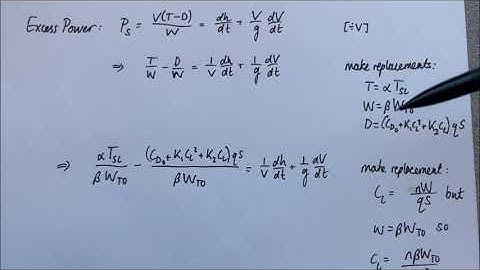 Excess Power: P_S = V(T-D)/W = dh/dt + V/g dV/dt [÷V]
⇒ T/W - D/W = 1/V dh/dt + 1/g dV/dt
make replacements:
T = αT_SL
W = βW_TO
D = (C_D0 + K_1C_L² + K_2C_L) qS
⇒ αT_SL/βW_TO - (C_D0 + K_1C_L² + K_2C_L) qS/βW_TO = 1/V dh/dt + 1/g dV/dt
make replacement:
C_L = nW/qS but
W = βW_TO so
C_L = nβW_TO